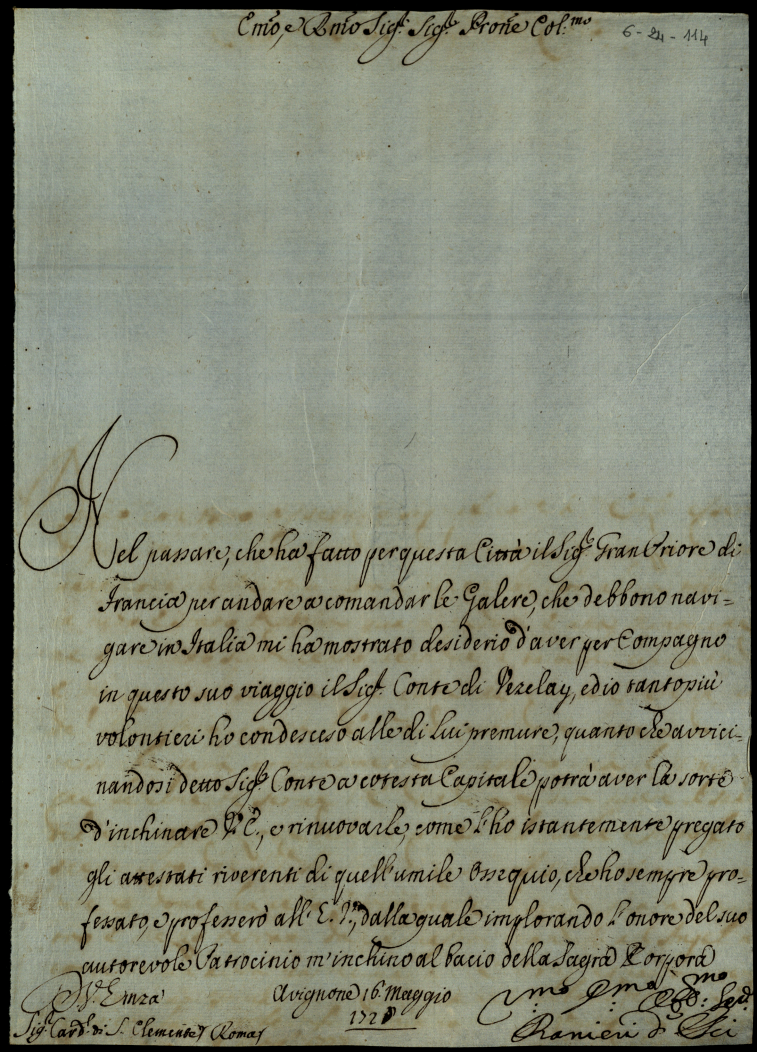 Emo, e Rmo Sig.r Sig.r Prone Col.mo
6-24-114
Nel passare, che ha fatto per questa Città il Sig.r Gran Priore di
Francia per andare a comandar le Galere, che debbono navi-
gare in Italia mi ha mostrato desiderio d'aver per Compagno
in questo suo viaggio il Sig.r Conte di Vezelay, ed io tanto più
volontieri ho condesceso alle di lui premure, quanto che avvici-
nandosi detto Sig.r Conte a cotesta Capitale potrà aver la sorte
d'inchinare V.E., e rinuovarle, come l'ho istantemente pregato
gli attestati riverenti di quell'umile Ossequio, che ho sempre pro-
fessato, e professerò all'E.V., dalla quale implorando l'onore del suo
autorevole Patrocinio m'inchino al bacio della Sagra Porpora
Di V.ra Emza
Avignone 16 Maggio
172
Sig.r Card.l di S. Clemente / Roma /
Ranieri d'Elci